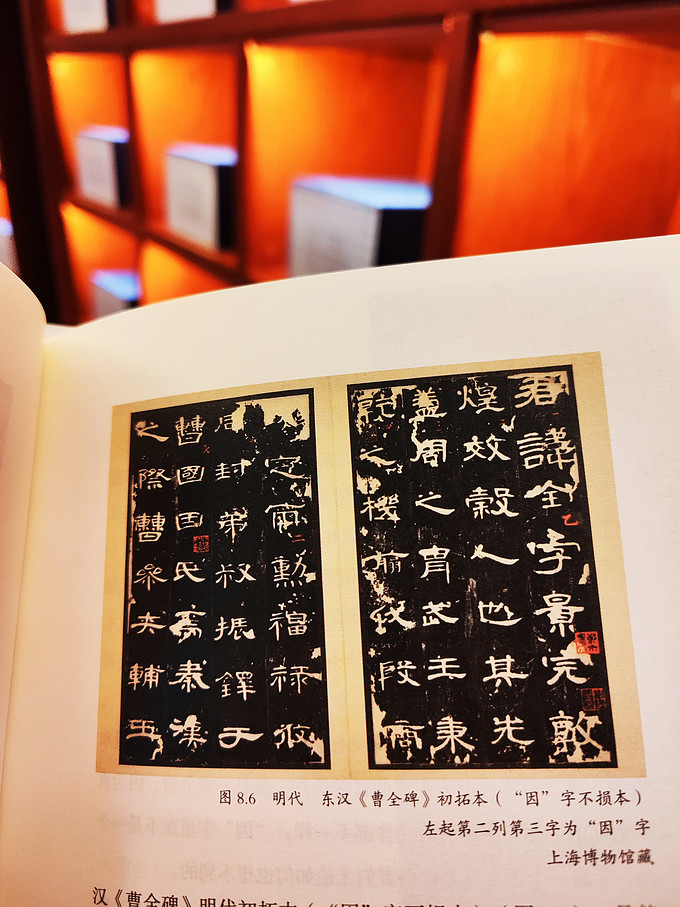 君諱全字景完敦
煌效穀人也其先
蓋周之冑武王秉
乾之機翦伐殷商
定爾勳福祿攸
同封弟叔振鐸于
曹國因氏焉秦漢
之際曹參夾輔王
图 8.6 明代 东汉《曹全碑》初拓本（“因”字不损本）
左起第二列第三字为“因”字
上海博物馆藏
汉《曹全碑》明代初拓本（“因”字